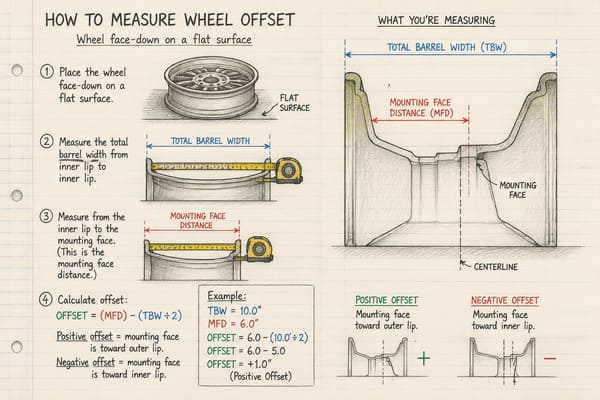 HOW TO MEASURE WHEEL OFFSET
Wheel face-down on a flat surface
1 Place the wheel
face-down on a
flat surface.
FLAT
SURFACE
2 Measure the total
barrel width from
inner lip to
inner lip.
TOTAL BARREL WIDTH
3 Measure from the
inner lip to the
mounting face.
(This is the
mounting face
distance.)
MOUNTING FACE
DISTANCE
4 Calculate offset:
OFFSET = (MFD) – (TBW ÷ 2)
Positive offset = mounting face
is toward outer lip.
Negative offset = mounting face
is toward inner lip.
Example:
TBW = 10.0"
MFD = 6.0"
OFFSET = 6.0 – (10.0 ÷ 2)
OFFSET = 6.0 – 5.0
OFFSET = +1.0"
(Positive Offset)
WHAT YOU'RE MEASURING
TOTAL BARREL WIDTH (TBW)
MOUNTING FACE
DISTANCE (MFD)
MOUNTING
FACE
CENTERLINE
POSITIVE OFFSET
Mounting face
toward outer lip.
+
NEGATIVE OFFSET
Mounting face
toward inner lip.
–